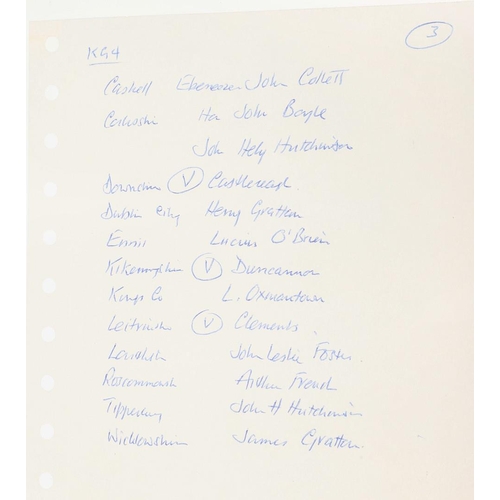 3
KG4
Cashell Ebenezer John Collett
Corkshire Hon John Boyle
John Hely Hutchinson
Downshire V Castlereagh.
Dublin City Henry Grattan
Ennis Lucius O'Brien
Kilkennyshire V Duncannon
Kings Co L. Oxmantown
Leitrimshire V Clements.
Louthsh John Leslie Foster.
Roscommonsh Arthur French
Tipperary John H Hutchinson
Wicklowshire James Grattan.